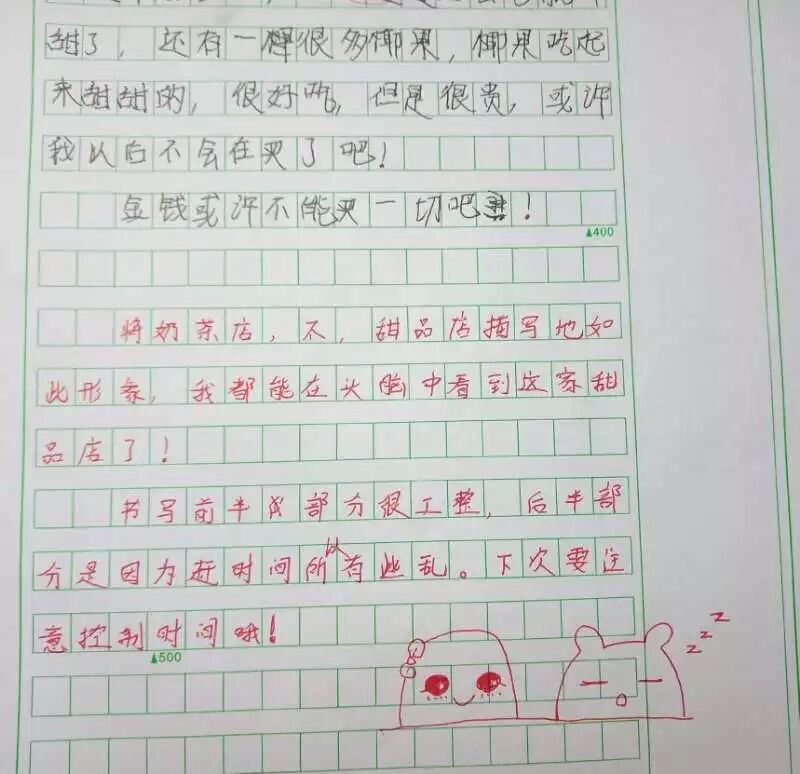 甜了，还有一得很多椰果，椰果吃起
来甜甜的，很好吃，但是很贵，或许
我以后不会在买了吧！
金钱或许不能买一切吧！
▲400
将奶茶店，不，甜品店描写地如
此形象，我都能在头脑中看到这家甜
品店了！
书写前半部分很工整，后半部
分是因为赶时间所以有些乱。下次要注
意控制时间哦！
▲500
z z z